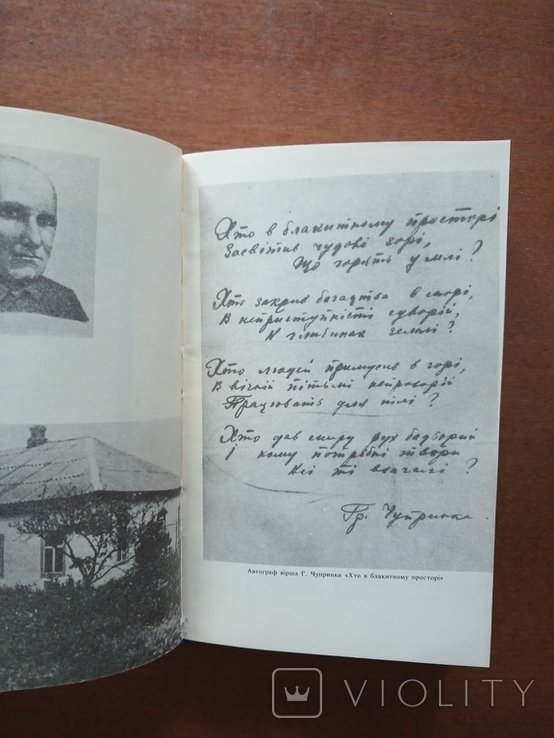 Хто в блакитному просторі
Засвітив чудові зорі,
Що горять у млі?
Хто закрив богатства в морі,
В неприступності суворій,
В глибинах землі?
Хто людей примусив в горі,
В вічній пітьмі непрозорій
Працювать для тлі?
Хто дав миру рух бадьорий
І кому потрібні твори
Всі ті взагалі?
Гр. Чупринка.
Автограф вірша Г. Чупринки «Хто в блакитному просторі»
VIOLITY